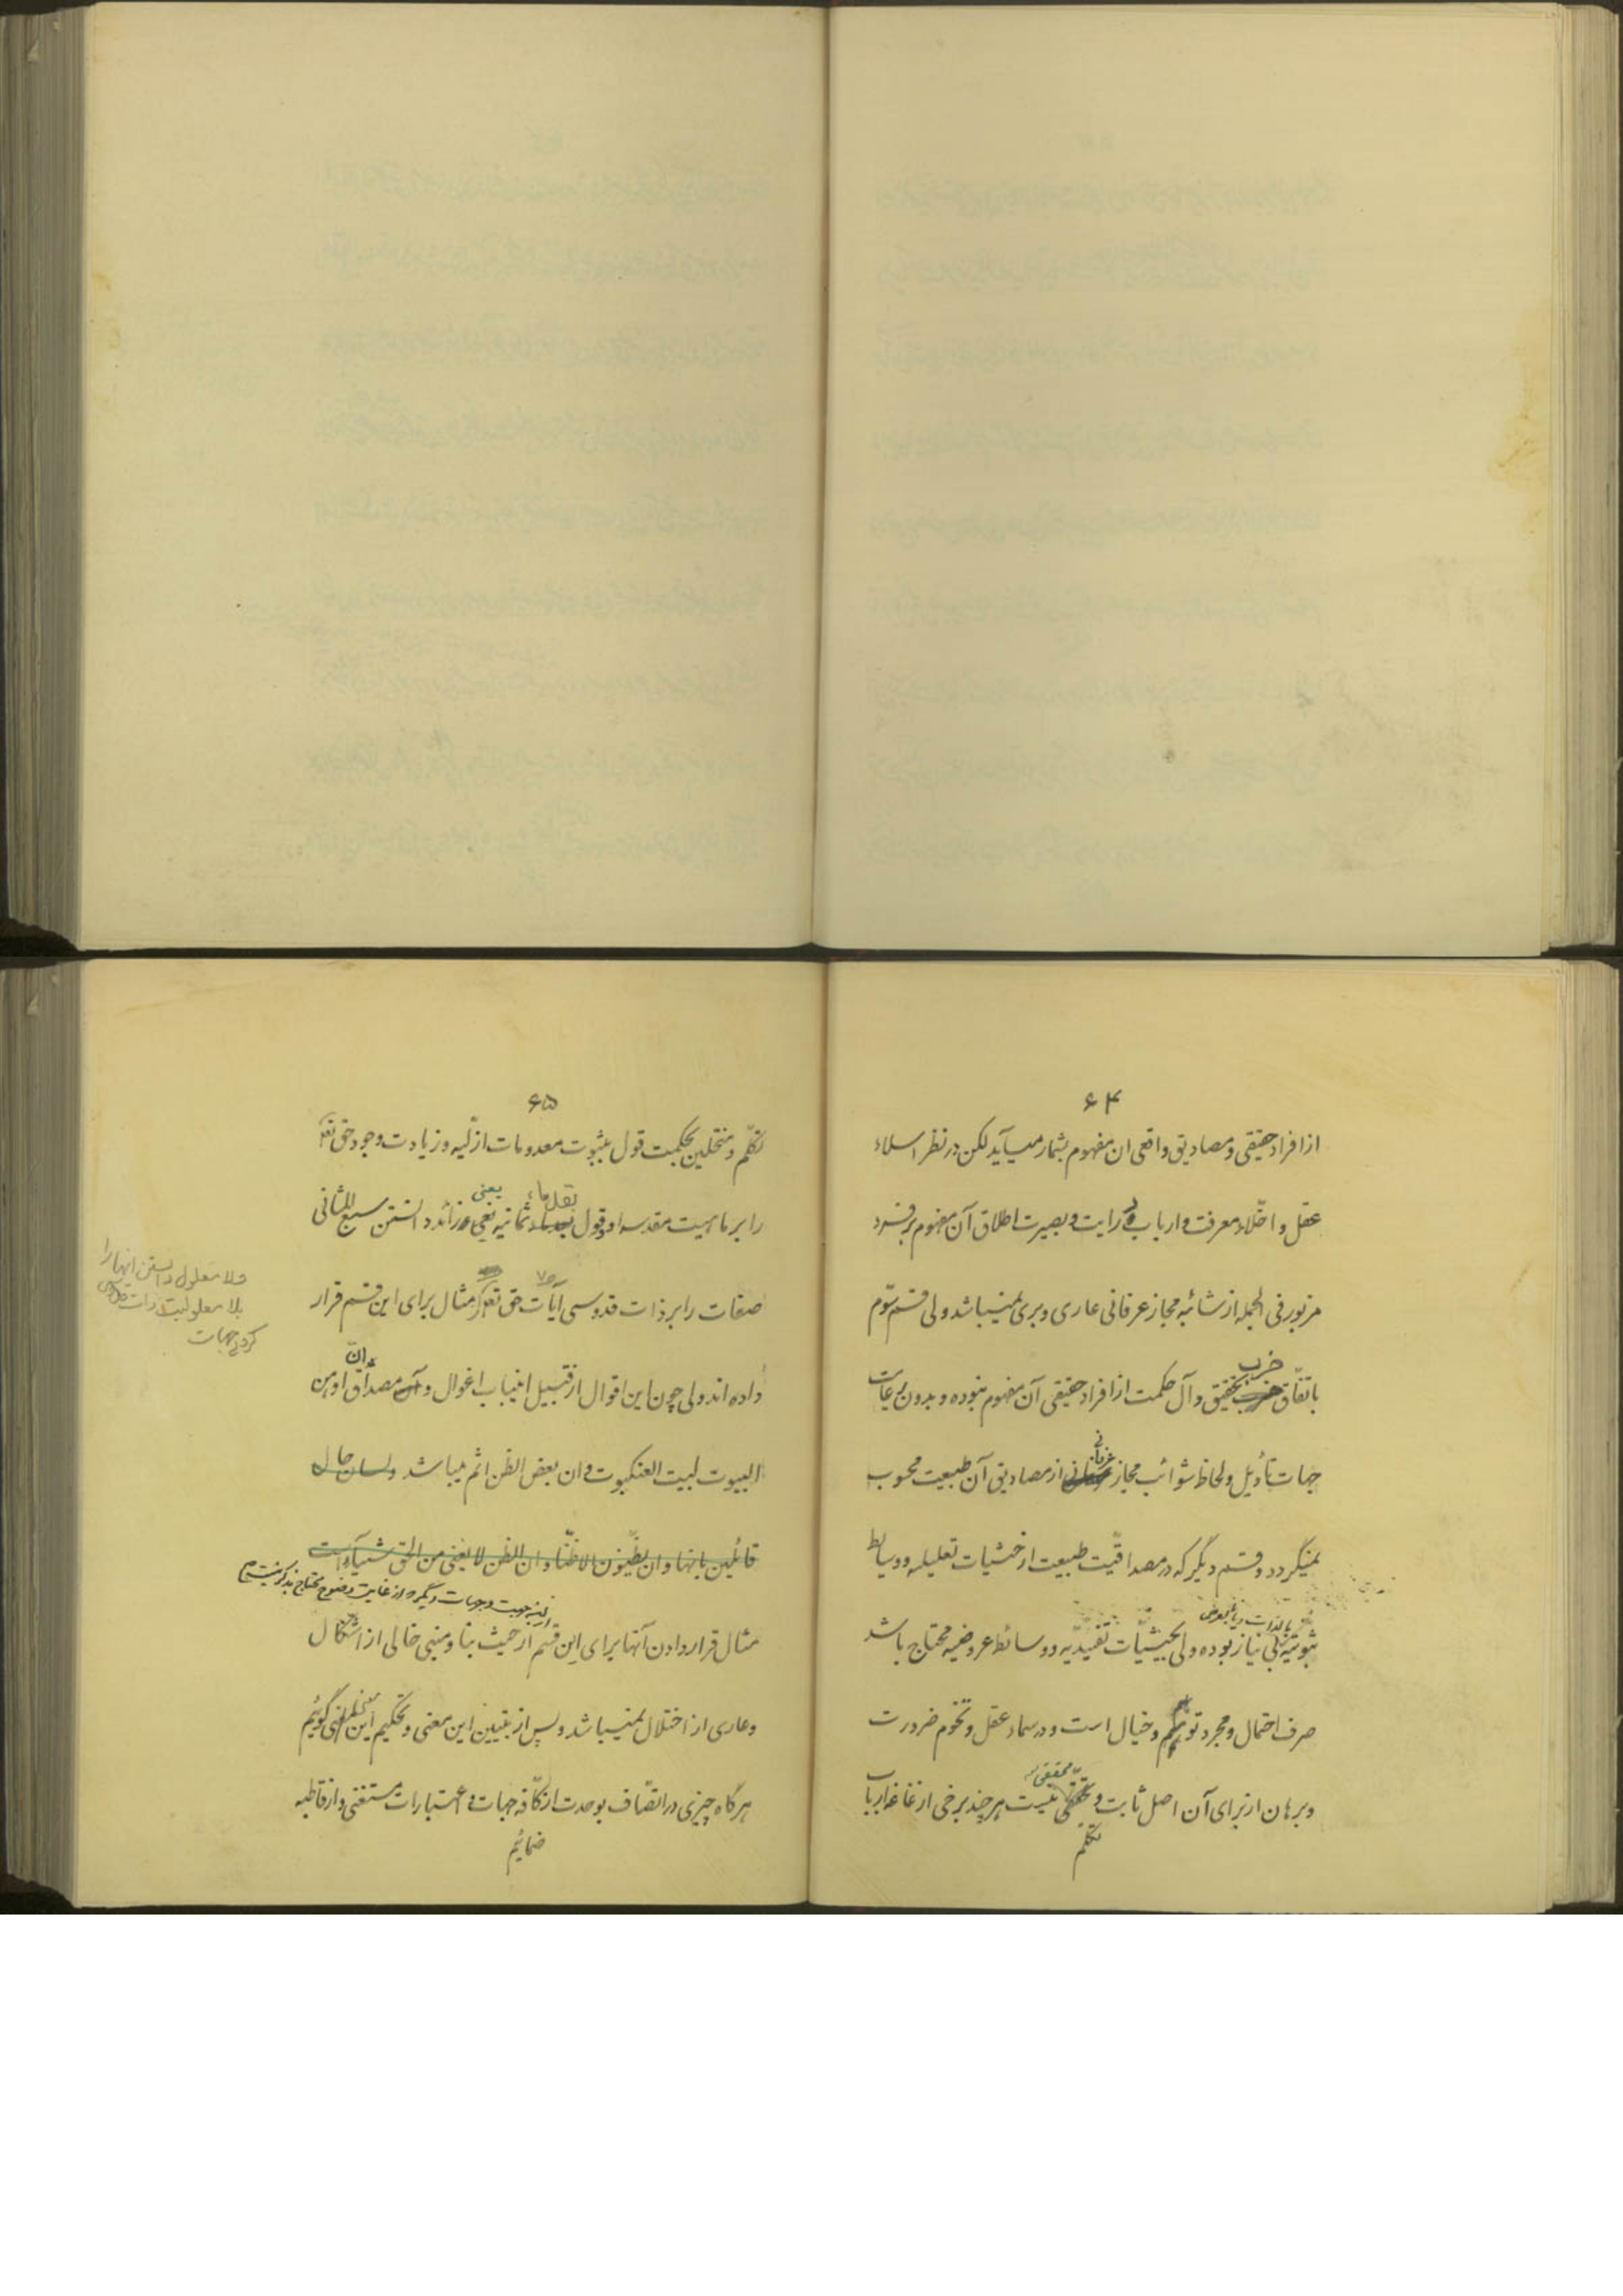 ۶۴
از افراد حقیقی و مصادیق واقعی ان مفهوم بشمار میآید لکن در نظر اسلاء
عقل و اخلّاء معرفت و ارباب درایت و بصیرت اطلاق آن مفهوم بر قسم
مزبور فی الجمله از شائبه مجاز عرفانی عاری و بری نمیباشد ولی قسم سوّم
باتفاق حزب تحقیق و آل حکمت از افراد حقیقی آن مفهوم نبوده و بدون رعایت
جهات تأویل و لحاظ شوائب مجاز عرفانی از مصادیق آن طبیعت محسوب
نمیگردد و قسم دیگر که در مصداقیّت طبیعت از حیثیات تعلیلیه و وسایط
ثبوتیه بی نیاز بوده ولی بحیثیّات تقییدیّه و وسائط عروضیه محتاج باشد
صرف احتمال و مجرد توهم و خیال است و در سماء عقل و تخوم ضرورت
و برهان از برای آن اصل ثابت و محققی نیست هر چند برخی از غاغه ارباب
تکلّم
۶۵
تکلّم و منتحلین بحکمت قول بثبوت معدومات ازلیّه و زیادت وجود حق تعالی
را بر ماهیت مقدسه او و قول بقدماء ثمانیه یعنی زائد دانستن سبع المثانی
صفات را بر ذات قدوسی آیات حق تعالی مثال برای این قسم قرار
داده اند ولی چون این اقوال از قبیل انیاب اغوال و مصداق انّ اوهن
البیوت لبیت العنکبوت و ان بعض الظن اثم میباشد و لسان حال
قائلین بانها و ان یظنّون الا ظنّا و ان الظن لا یغنی من الحق شیئا است
مثال قرار دادن آنها برای این قسم از حیث بنا و مبنی خالی از اشکال
و عاری از اختلال نمیباشد و پس از تبیین این معنی و تحکیم این مبنی گوئیم
هر گاه چیزی در اتصّاف بوحدت از کافّه جهات و اعتبارات مستغنی و از قاطبه
ضمائم
معلول دانستن انها را
بلا معلولیت ذات
جهات